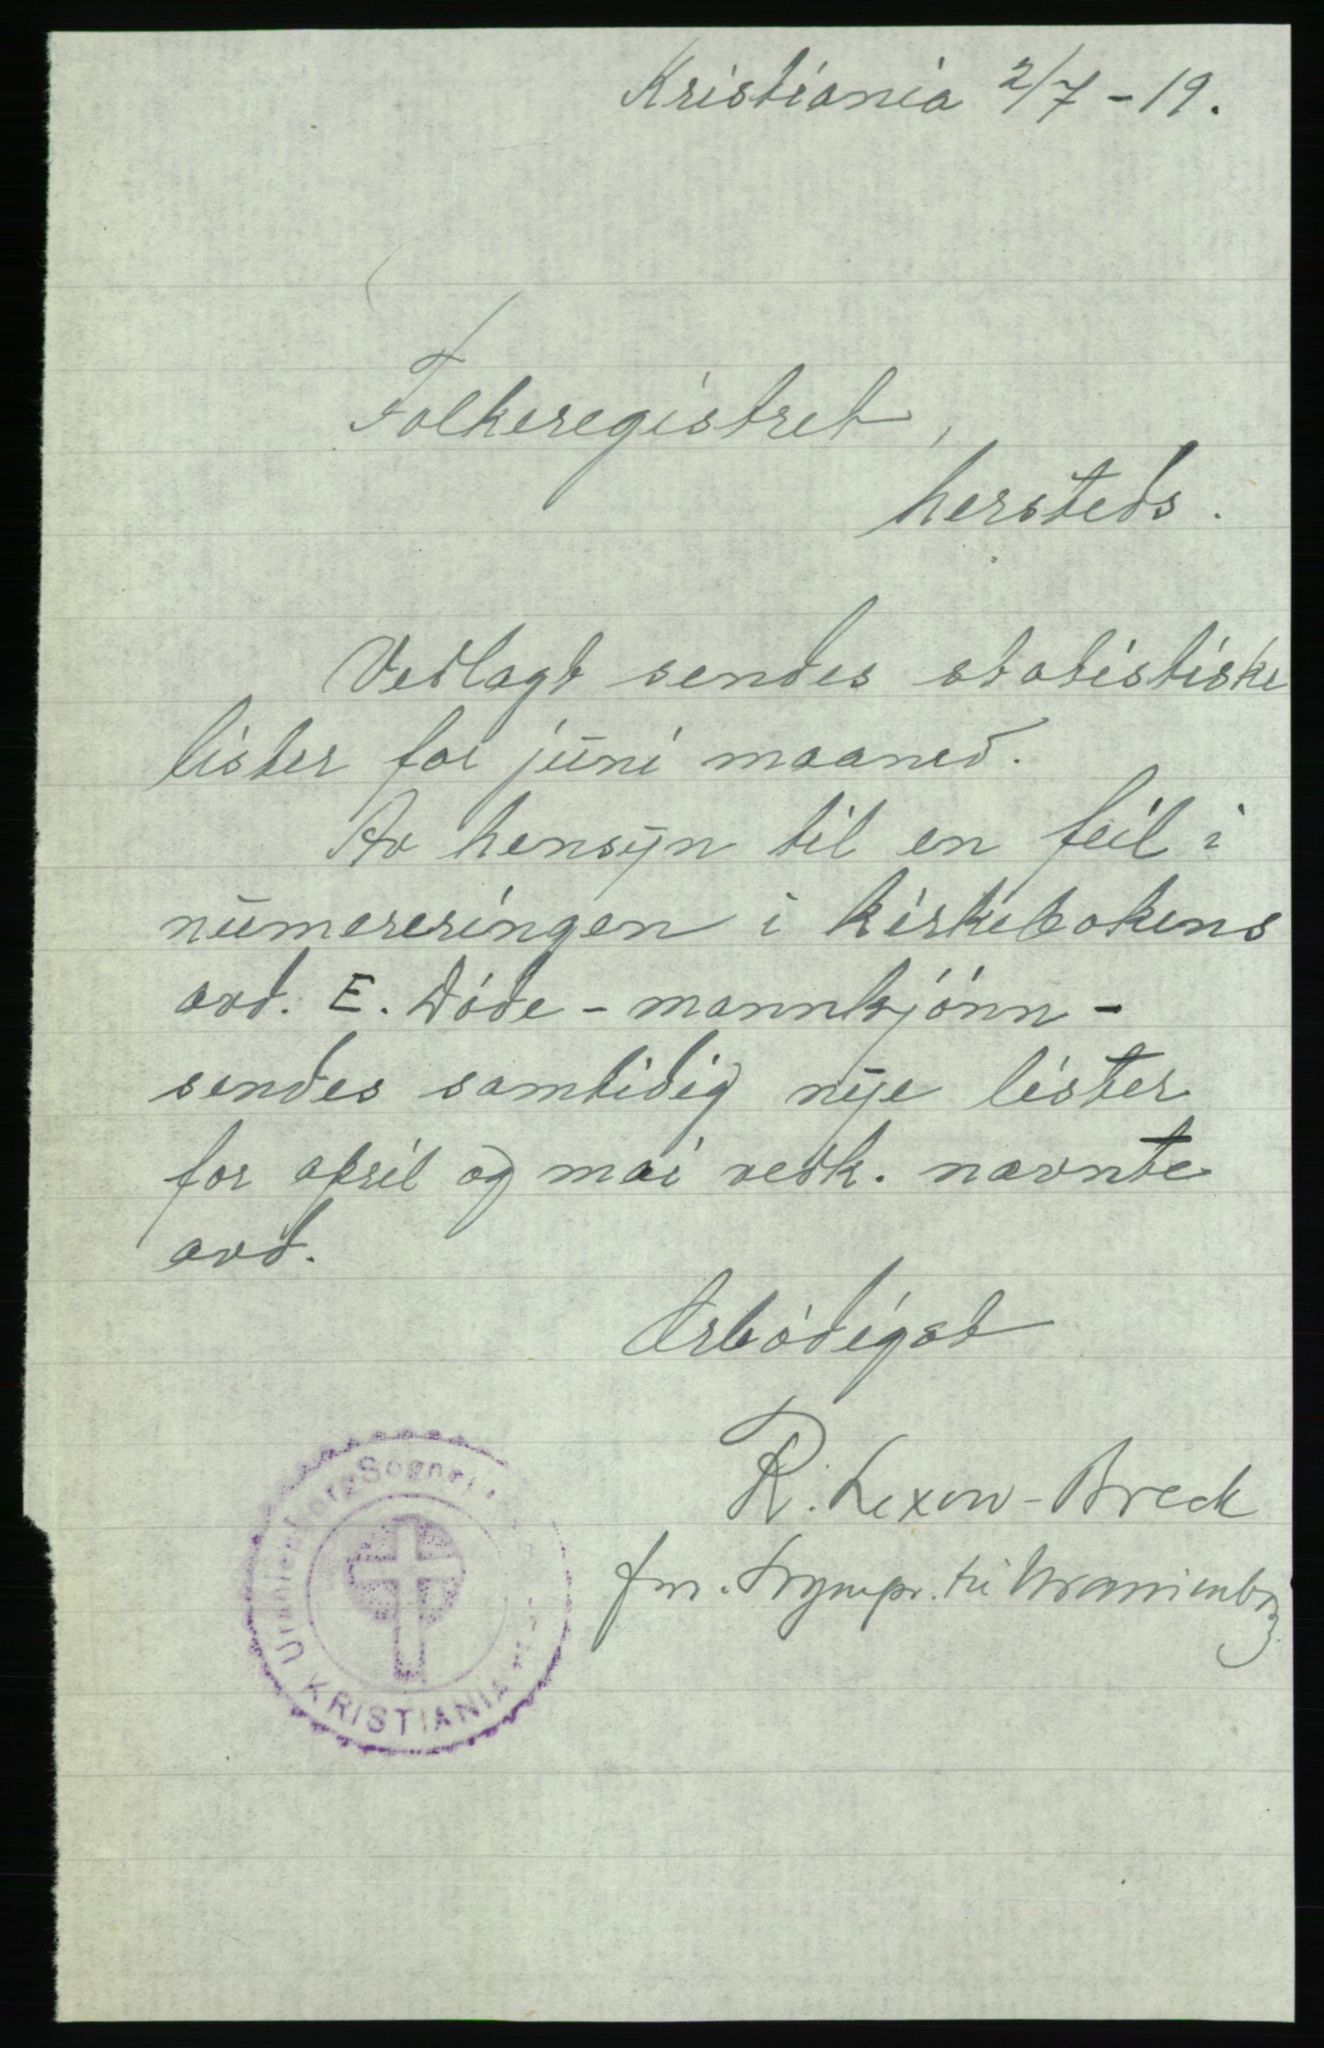 Kristiania 2/7 - 19.
Folkeregistret,
hersteds.
Vedlagt sendes statistiske
lister for juni maaned.
Av hensyn til en feil i
numereringen i kirkebokens
avd. E. Døde - mannkjønn -
sendes samtidig nye lister
for april og mai vedk. nævnte
avd.
Ærbødigst
R. Lexow-Breck
fm. sogmpr. til Uranienbg
Uranienborg Sogne
KRISTIANIA